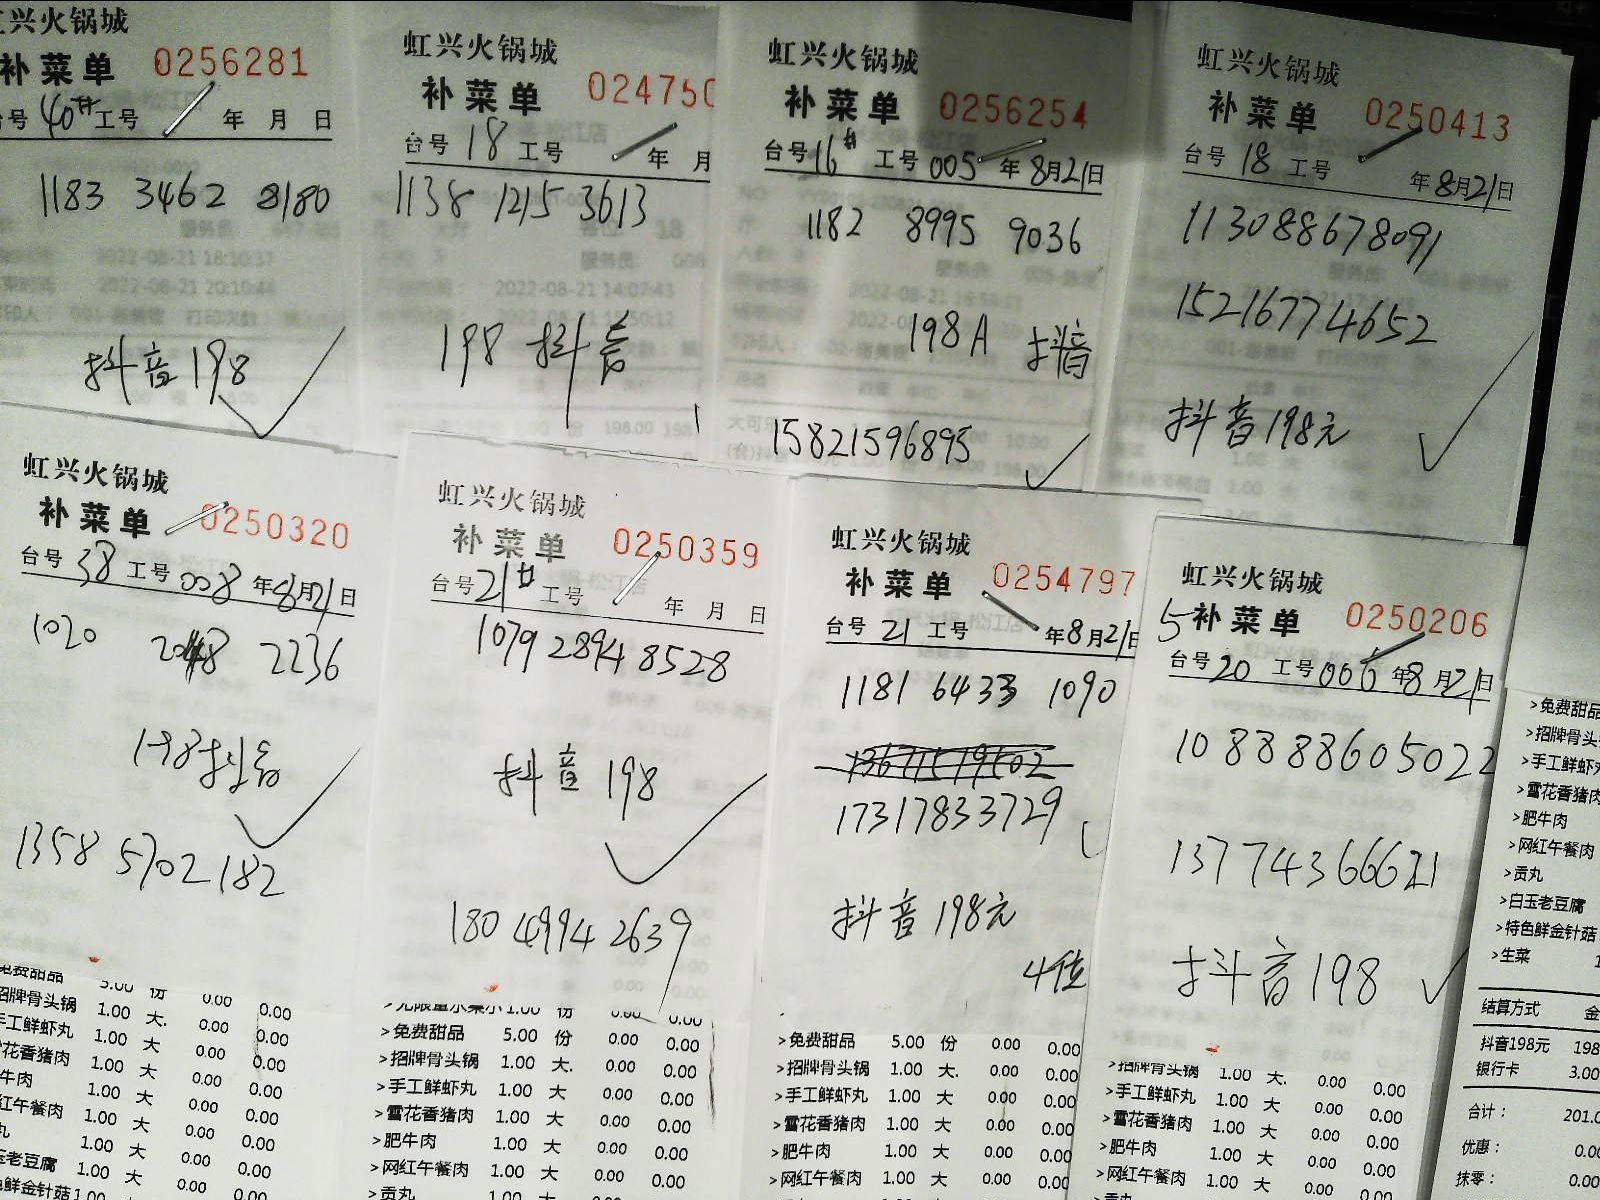 虹兴火锅城
补菜单 0256281
台号 40 工号 年 月 日
1183 3462 8180
2022-08-21 18:10:37
抖音198
虹兴火锅城
补菜单 024750
台号 18 工号 年 月
1138 1215 3613
2022-08-21 14:07:43
198 抖音
虹兴火锅城
补菜单 0256254
台号 16 工号 005 年 8月21日
1182 8995 9036
198A 抖音
15821596895
虹兴火锅城
补菜单 0250413
台号 18 工号 年 8月21日
113088678091
15216774652
抖音198元
虹兴火锅城
补菜单 0250320
台号 38 工号 008 年 8月21日
1020 2048 2236
198抖音
1358 5702182
免费甜品 5.00 份 0.00 0.00
招牌骨头锅 1.00 大. 0.00 0.00
手工鲜虾丸 1.00 大 0.00 0.00
雪花香猪肉 1.00 大 0.00 0.00
牛肉 1.00 大 0.00 0.00
红午餐肉 1.00 大 0.00 0.00
丸 1.00 大 0.00 0.00
玉老豆腐 1.00 大 0.00 0.00
色鲜金针菇 1.00 大 0.00 0.00
虹兴火锅城
补菜单 0250359
台号 21 工号 年 月 日
1079 2894 8528
抖音 198
180 4994 2639
>免费甜品 5.00 份 0.00 0.00
>招牌骨头锅 1.00 大. 0.00 0.00
>手工鲜虾丸 1.00 大 0.00 0.00
>雪花香猪肉 1.00 大 0.00 0.00
>肥牛肉 1.00 大 0.00 0.00
>网红午餐肉 1.00 大 0.00 0.00
>贡丸 1.00 大 0.00 0.00
虹兴火锅城
补菜单 0254797
台号 21 工号 年 8月21日
1181 6433 1090
17317833729
抖音198元
4位
>免费甜品 5.00 份 0.00 0.00
>招牌骨头锅 1.00 大. 0.00 0.00
>手工鲜虾丸 1.00 大 0.00 0.00
>雪花香猪肉 1.00 大 0.00 0.00
>肥牛肉 1.00 大 0.00 0.00
>网红午餐肉 1.00 大 0.00 0.00
虹兴火锅城
5 补菜单 0250206
台号 20 工号 006 年 8月21日
108888605022
13774366621
抖音198
>招牌骨头锅 1.00 大. 0.00 0.00
>手工鲜虾丸 1.00 大 0.00 0.00
>雪花香猪肉 1.00 大 0.00 0.00
>肥牛肉 1.00 大 0.00 0.00
>网红午餐肉 1.00 大 0.00 0.00
>贡丸 1.00 大 0.00 0.00
>免费甜品
>招牌骨头
>手工鲜虾丸
>雪花香猪肉
>肥牛肉
>网红午餐肉
>贡丸
>白玉老豆腐
>特色鲜金针菇
>生菜
结算方式 金
抖音198元 198
银行卡 3.00
合计： 201.0
优惠： 0.00
抹零： 0.00